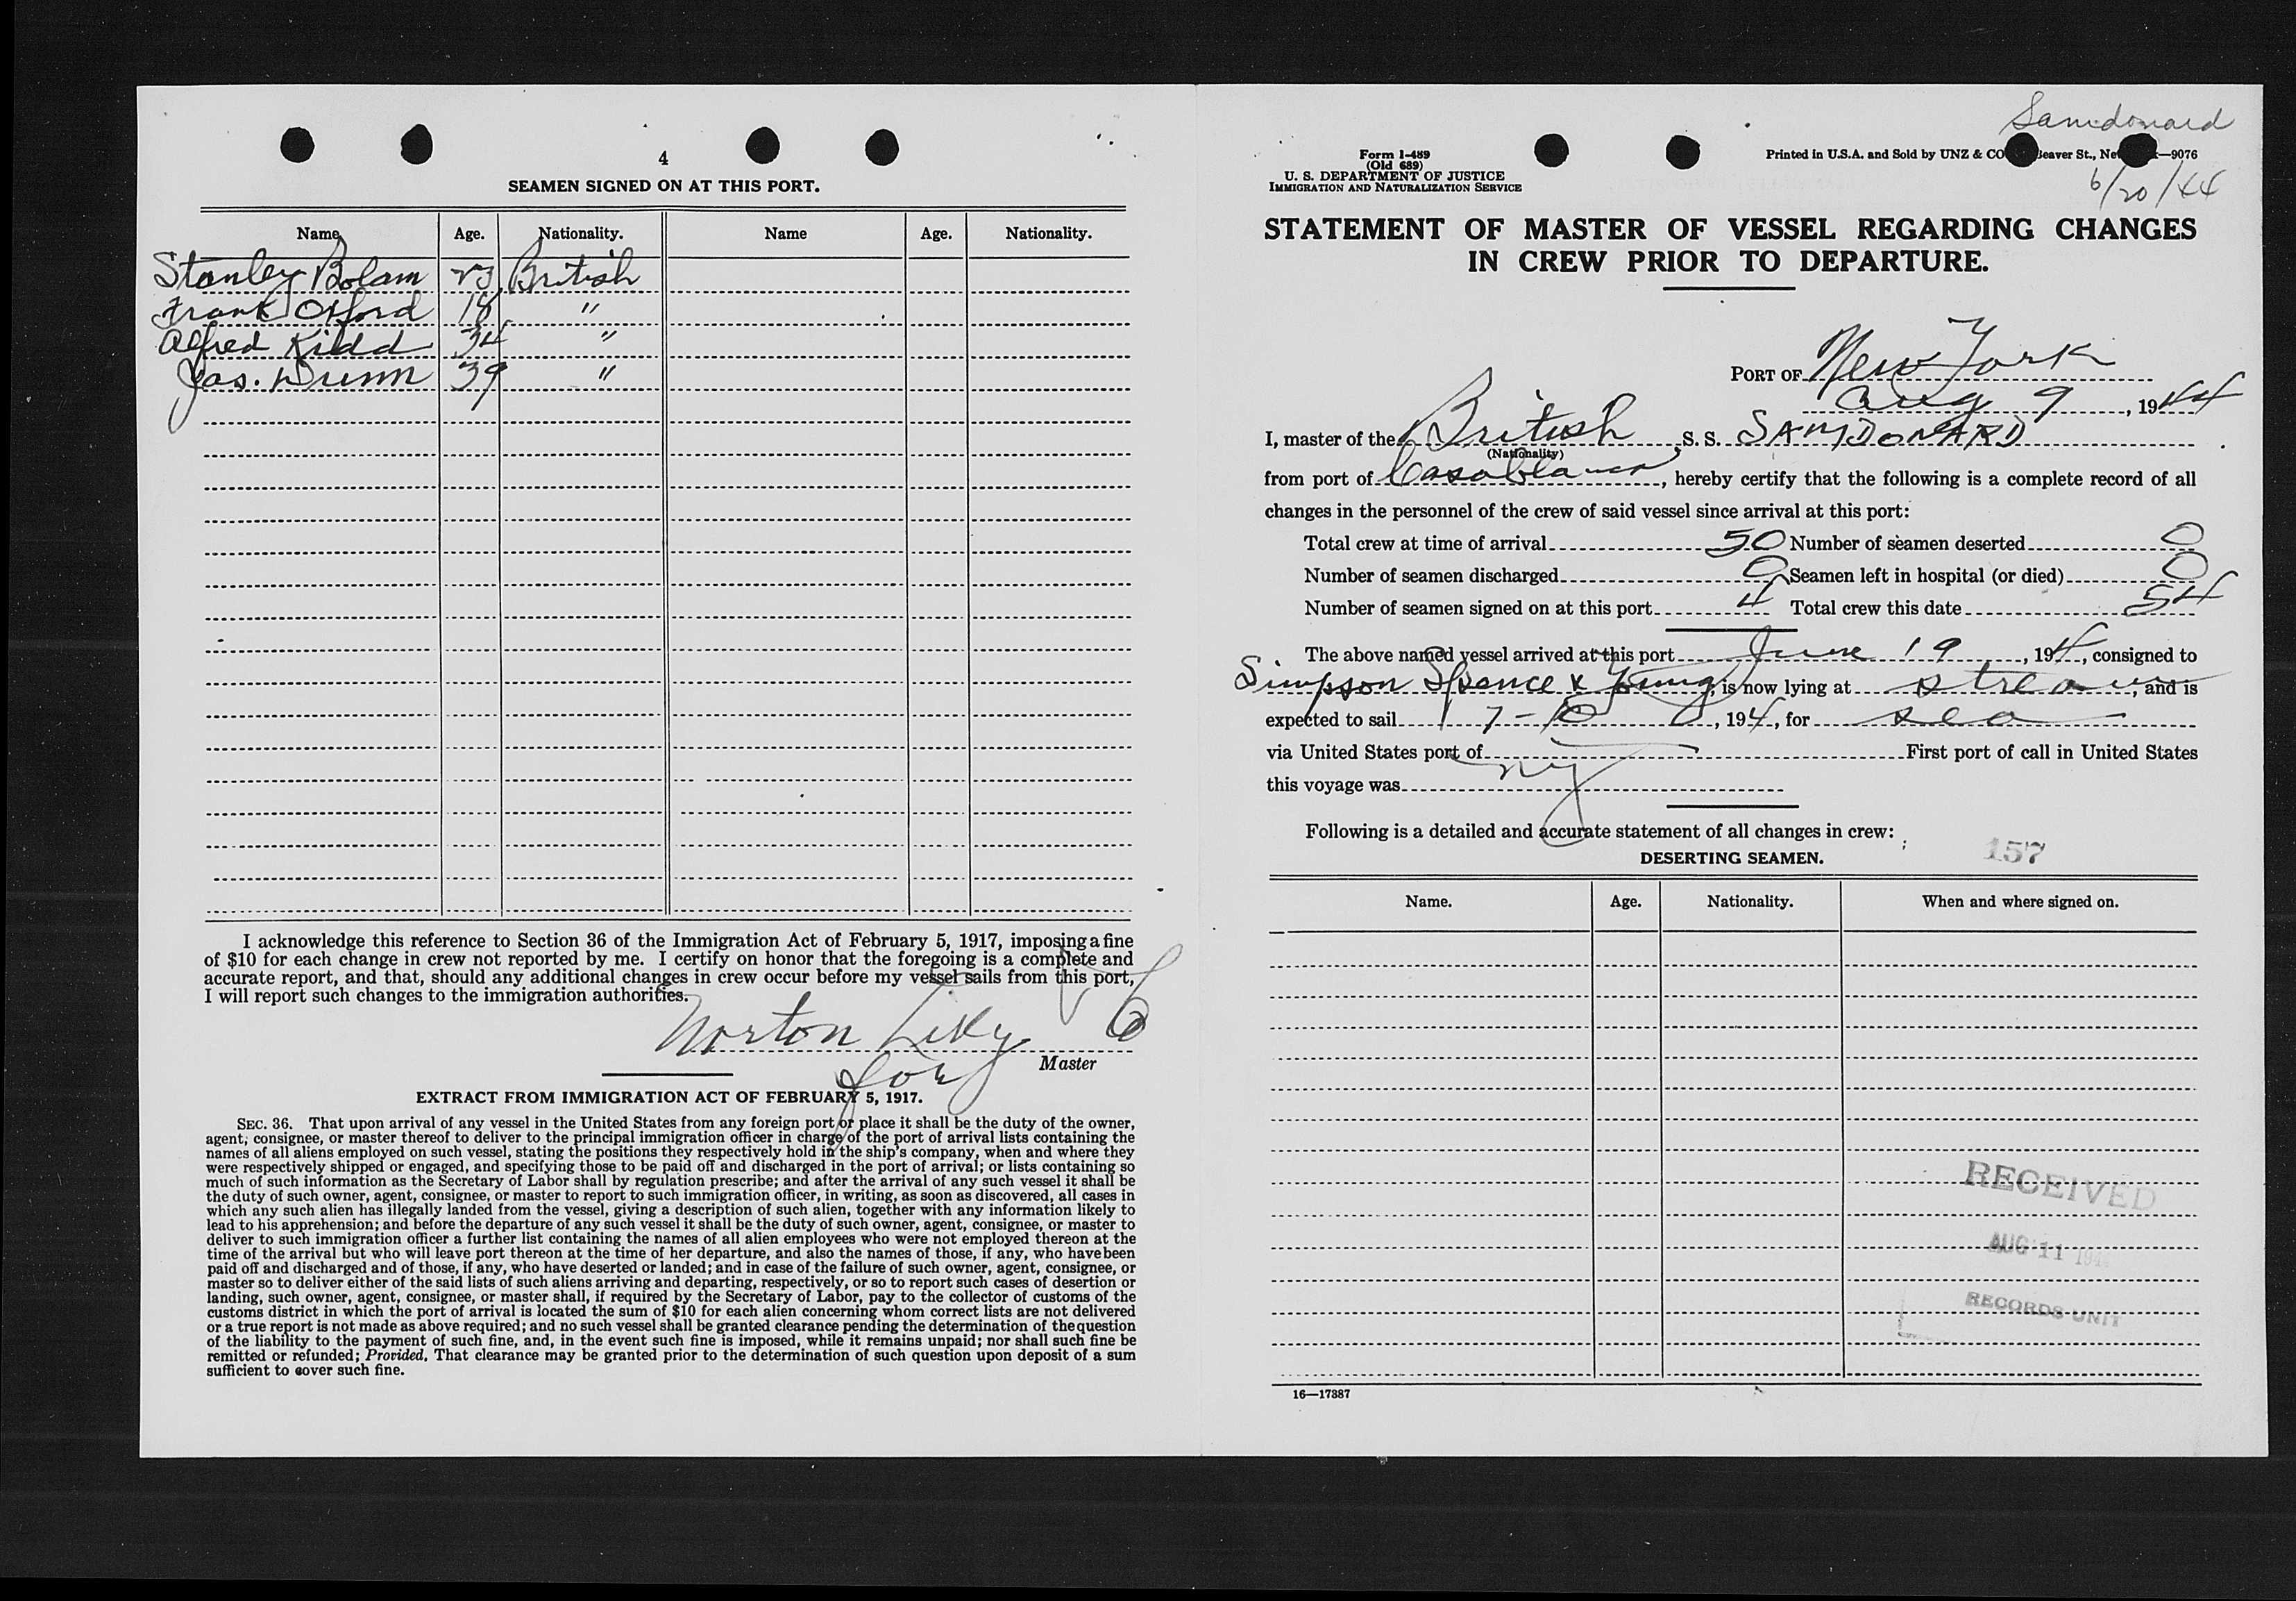 4
SEAMEN SIGNED ON AT THIS PORT.
Name Age. Nationality. Name Age. Nationality.
Stanley Bolam 23 British
Frank Oxford 18 "
Alfred Kidd 34 "
Jas. Dunn 39 "
I acknowledge this reference to Section 36 of the Immigration Act of February 5, 1917, imposing a fine
of $10 for each change in crew not reported by me. I certify on honor that the foregoing is a complete and
accurate report, and that, should any additional changes in crew occur before my vessel sails from this port,
I will report such changes to the immigration authorities.
Norton Lilly
for
Master
EXTRACT FROM IMMIGRATION ACT OF FEBRUARY 5, 1917.
SEC. 36. That upon arrival of any vessel in the United States from any foreign port or place it shall be the duty of the owner,
agent, consignee, or master thereof to deliver to the principal immigration officer in charge of the port of arrival lists containing the
names of all aliens employed on such vessel, stating the positions they respectively hold in the ship's company, when and where they
were respectively shipped or engaged, and specifying those to be paid off and discharged in the port of arrival; or lists containing so
much of such information as the Secretary of Labor shall by regulation prescribe; and after the arrival of any such vessel it shall be
the duty of such owner, agent, consignee, or master to report to such immigration officer, in writing, as soon as discovered, all cases in
which any such alien has illegally landed from the vessel, giving a description of such alien, together with any information likely to
lead to his apprehension; and before the departure of any such vessel it shall be the duty of such owner, agent, consignee, or master to
deliver to such immigration officer a further list containing the names of all alien employees who were not employed thereon at the
time of the arrival but who will leave port thereon at the time of her departure, and also the names of those, if any, who have been
paid off and discharged and of those, if any, who have deserted or landed; and in case of the failure of such owner, agent, consignee, or
master so to deliver either of the said lists of such aliens arriving and departing, respectively, or so to report such cases of desertion or
landing, such owner, agent, consignee, or master shall, if required by the Secretary of Labor, pay to the collector of customs of the
customs district in which the port of arrival is located the sum of $10 for each alien concerning whom correct lists are not delivered
or a true report is not made as above required; and no such vessel shall be granted clearance pending the determination of the question
of the liability to the payment of such fine, and, in the event such fine is imposed, while it remains unpaid; nor shall such fine be
remitted or refunded; Provided, That clearance may be granted prior to the determination of such question upon deposit of a sum
sufficient to cover such fine.
Samdonard
Form I-489
(Old 689)
U. S. DEPARTMENT OF JUSTICE
IMMIGRATION AND NATURALIZATION SERVICE
Printed in U.S.A. and Sold by UNZ & CO Beaver St., —9076
6/20/44
STATEMENT OF MASTER OF VESSEL REGARDING CHANGES
IN CREW PRIOR TO DEPARTURE.
PORT OF New York
Aug 9, 1944
I, master of the British S. S. SAMDONARD
(Nationality)
from port of Casablanca, hereby certify that the following is a complete record of all
changes in the personnel of the crew of said vessel since arrival at this port:
Total crew at time of arrival 50 Number of seamen deserted 0
Number of seamen discharged 0 Seamen left in hospital (or died) 0
Number of seamen signed on at this port 4 Total crew this date 54
The above named vessel arrived at this port June 19, 194, consigned to
Simpson Spence & Young, is now lying at stream, and is
expected to sail , 194, for sea
via United States port of First port of call in United States
this voyage was NY
Following is a detailed and accurate statement of all changes in crew:
157
DESERTING SEAMEN.
Name. Age. Nationality. When and where signed on.
RECEIVED
AUG 11 194
RECORDS UNIT
16—17387